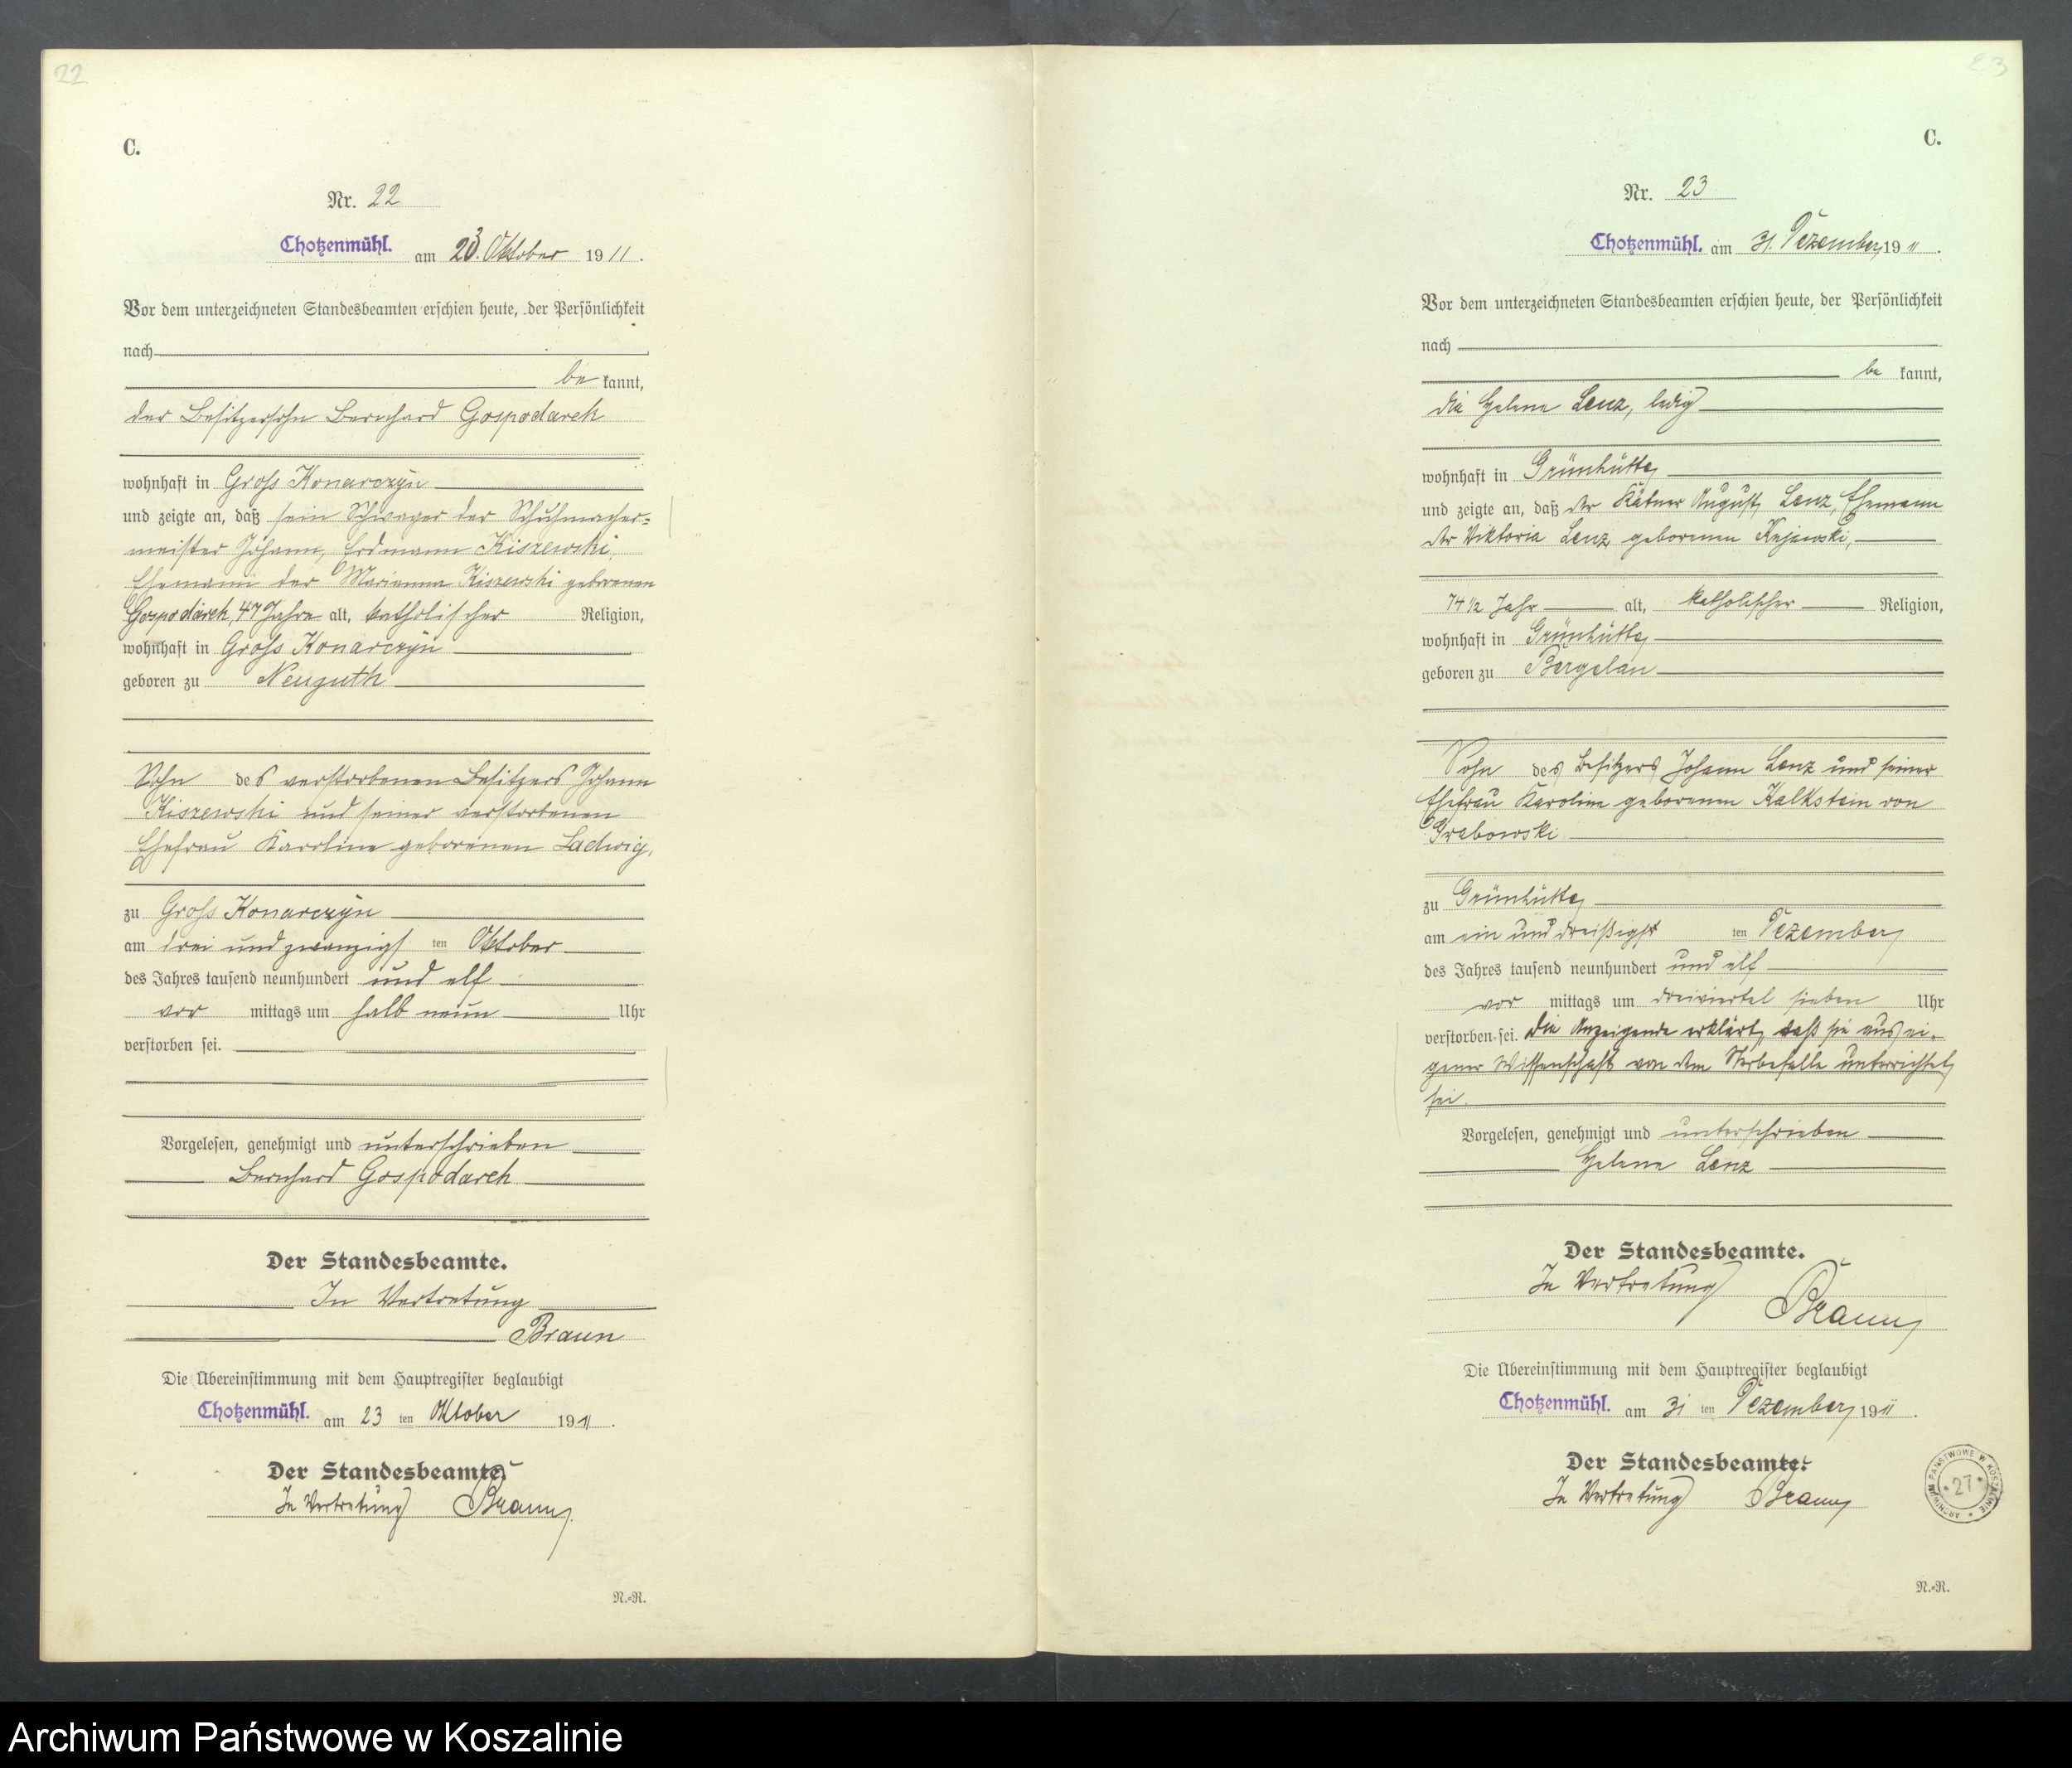 22
C.
Nr. 22
Chotzenmühl. am 23. Oktober 1911.
Vor dem unterzeichneten Standesbeamten erschien heute, der Persönlichkeit
nach
be kannt,
der Besitzersohn Bernhard Gospodarek
wohnhaft in Gross Konarczyn
und zeigte an, daß sein Schwager der Schuhmacher=
meister Johann Erdmann Kiszewski,
Ehemann der Marianna Kiszewski geborenen
Gospodarek, 47 Jahre alt, katholischer Religion,
wohnhaft in Gross Konarczyn
geboren zu Neuguth
Sohn des verstorbenen Besitzers Johann
Kiszewski und seiner verstorbenen
Ehefrau Karoline geborenen Ladwig,
zu Gross Konarczyn
am drei und zwanzigsten Oktober
des Jahres tausend neunhundert und elf
vor mittags um halb neun Uhr
verstorben sei.
Vorgelesen, genehmigt und unterschrieben
Bernhard Gospodarek
Der Standesbeamte.
In Vertretung
Braun
Die Übereinstimmung mit dem Hauptregister beglaubigt
Chotzenmühl. am 23 ten Oktober 1911.
Der Standesbeamte.
In Vertretung Braun
N.-R.
23
C.
Nr. 23
Chotzenmühl. am 31. Dezember 1911.
Vor dem unterzeichneten Standesbeamten erschien heute, der Persönlichkeit
nach
be kannt,
die Helene Lenz, ledig
wohnhaft in Grünhütte
und zeigte an, daß der Kätner August Lenz, Ehemann
der Viktoria Lenz geborenen Kujawski,
74 1/2 Jahr alt, katholischer Religion,
wohnhaft in Grünhütte
geboren zu Bergelau
Sohn des Besitzers Johann Lenz und seiner
Ehefrau Karoline geborenen Kalkstein von
Grabowski
zu Grünhütte
am ein und dreißigsten Dezember
des Jahres tausend neunhundert und elf
vor mittags um dreiviertel sieben Uhr
verstorben sei. Die Anzeigende erklärt, daß sie aus ei-
gener Wissenschaft von dem Sterbefalle unterrichtet
sei.
Vorgelesen, genehmigt und unterschrieben
Helene Lenz
Der Standesbeamte.
In Vertretung
Braun
Die Übereinstimmung mit dem Hauptregister beglaubigt
Chotzenmühl. am 31 ten Dezember 1911.
Der Standesbeamte.
In Vertretung Braun
ARCHIWUM PAŃSTWOWE W KOSZALINIE * 27 *
N.-R.
Archiwum Państwowe w Koszalinie